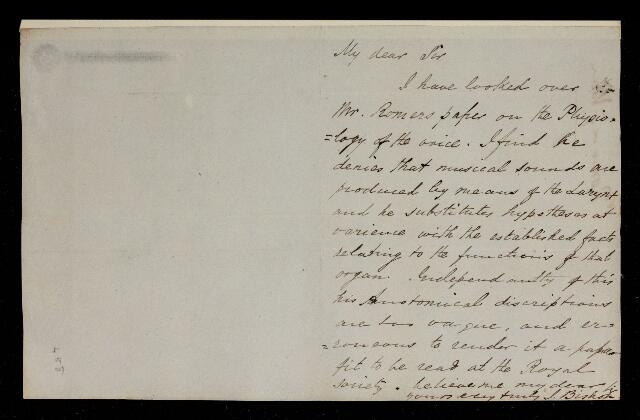 My dear Sir
I have looked over
Mr. Romers paper on the Physio=
=logy of the voice. I find he
denies that musical sounds are
produced by means of the Larynx
and he substitutes hypotheses at
varience with the established facts
relating to the functions of that
organ. Independantly of this
his Anatomical discriptions
are too vague, and er=
=roneous to render it a paper
fit to be read at the Royal
Society. believe me my dear Sir
yours very truly J Bishop